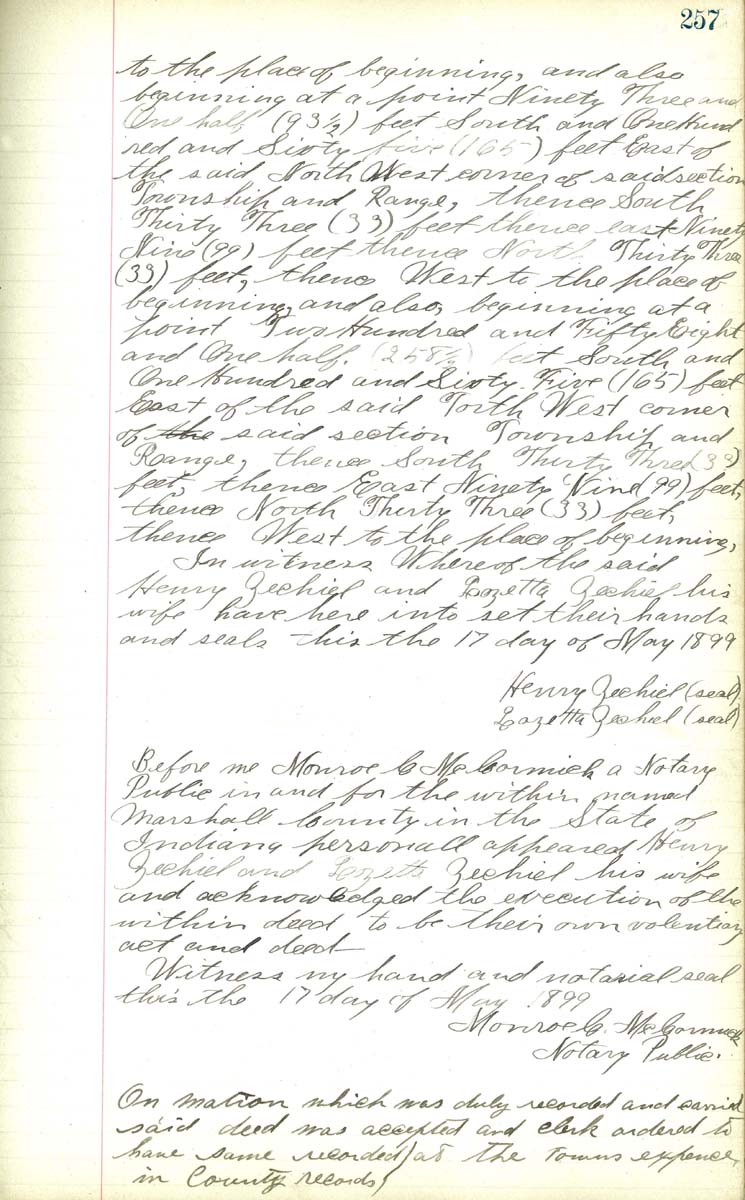 257
to the place of beginning, and also
beginning at a point Ninety Three and
One half (93½) feet South and One Hund
red and Sixty five (165) feet East of
the said North West corner of said section
Township and Range, thence South
Thirty Three (33) feet thence east Ninety
Nine (99) feet thence North Thirty Three
(33) feet, thence West to the place of
beginning, and also, beginning at a
point Two Hundred and Fifty Eight
and One half. (258½) feet South and
One Hundred and Sixty Five (165) feet
East of the said Torth West corner
of the said section Township and
Range, thence South Thirty Three (33)
feet, thence East Ninety Nine (99) feet,
thence North Thirty Three (33) feet,
thence West to the place of beginning,
In witness Whereof the said
Henry Zechiel and Lozetta Zechiel his
wife have here into set their hands
and seals this the 17 day of May 1899
Henry Zechiel (seal)
Lozetta Zechiel (seal)
Before me Monroe C McCormick a Notary
Public in and for the within named
Marshall County in the State of
Indiana personall appeared Henry
Zechiel and Lozetta Zechiel his wife
and acknowledged the execution of the
within deed to be their own volentiary
act and deed
Witness my hand and notarial seal
this the 17 day of May 1899
Monroe C. McCormick
Notary Public.
On mation which was duly recorded and carried
said deed was accepted and clerk ordered to
have same recorded, at the towns expence,
in County records,